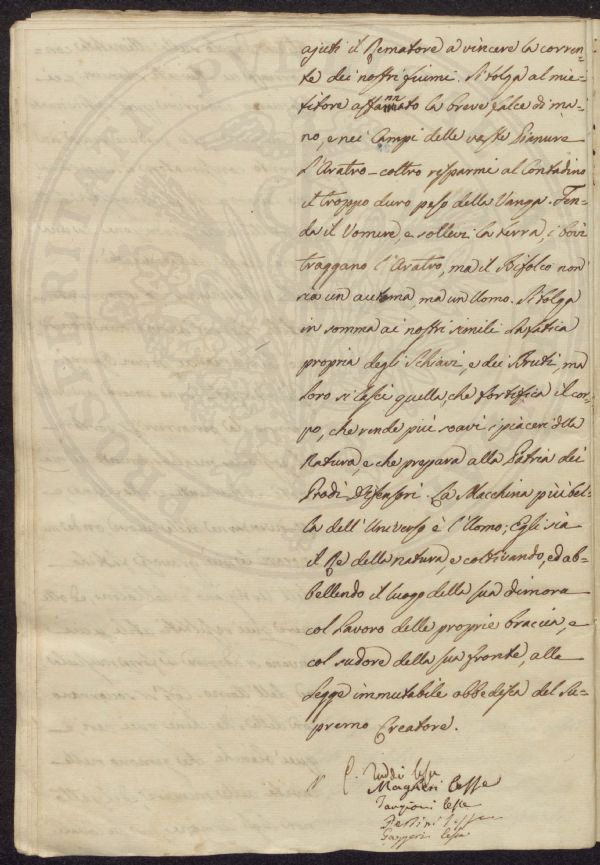 ajuti il Rematore a vincere la corren-
te dei nostri fiumi. Si tolga al mie-
titore affannato la breve falce di ma-
no, e nei Campi delle vaste Pianure
l'Aratro-coltro risparmi al Contadino
il troppo duro peso della Vanga. Fen-
da il Vomere, e sollevi la terra, i bovi
traggano l'Aratro, ma il Bifolco non
sia un automa, ma un Uomo. Si tolga
in somma ai nostri simili la fatica
propria degli Schiavi, e dei Bruti, ma
loro si lasci quella, che fortifica il cor-
po, che rende più soavi i piaceri della
Natura, e che prepara alla Patria dei
Prodi Difensori. La Macchina più bel-
la dell'Universo è l'Uomo; Egli sia
il Re della natura, e coltivando, ed ab-
bellendo il luogo della sua dimora
col lavoro delle proprie braccia, e
col sudore della sua fronte, alla
Legge immutabile obbedisca del Su-
premo Creatore.
Magheri
Targioni
Gazzeri
PROSPERITA PVBL